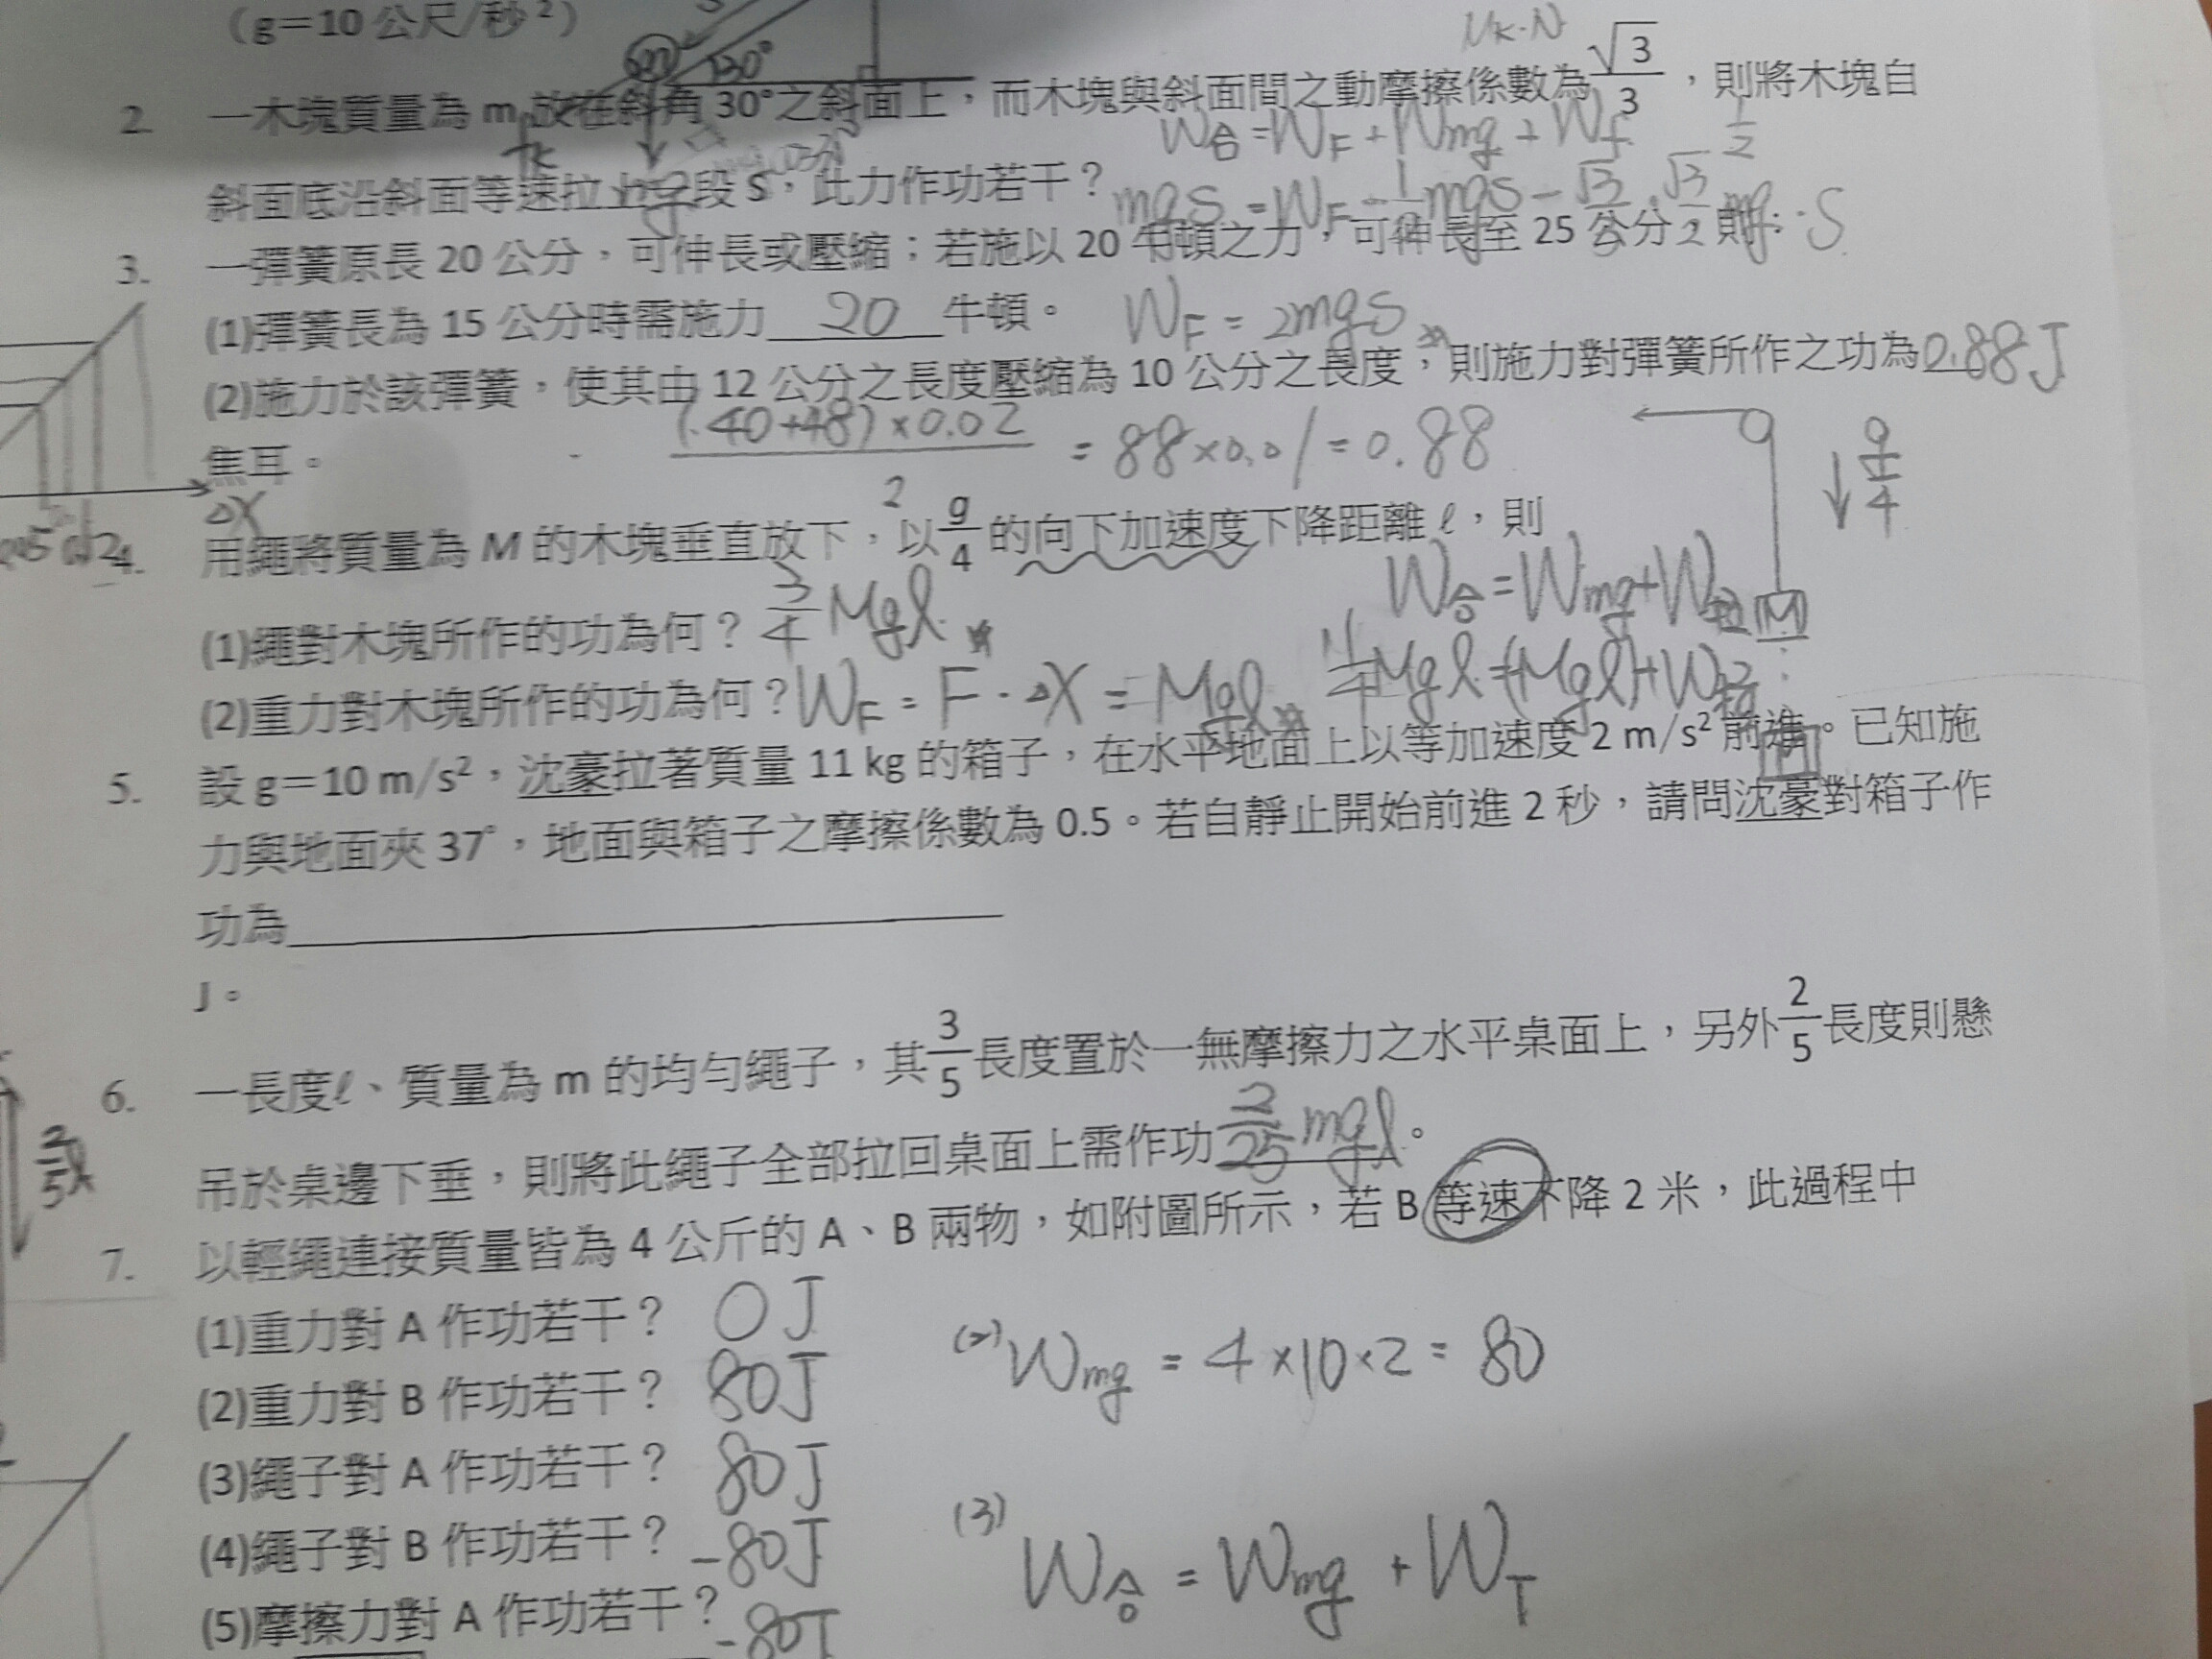 （g＝10 公尺／秒²）
m 30°
μk·N
2. 一木塊質量為 m 放在斜角 30°之斜面上，而木塊與斜面間之動摩擦係數為√3/3，則將木塊自
W合=WF+Wmg+Wf
斜面底沿斜面等速拉上一段 S，此力作功若干？
mgS=WF-1/2mgS-√3/3·√3/2mg·S
3. 一彈簧原長 20 公分，可伸長或壓縮；若施以 20 牛頓之力，可伸長至 25 公分，則：
(1)彈簧長為 15 公分時需施力 20 牛頓。
WF=2mgS
(2)施力於該彈簧，使其由 12 公分之長度壓縮為 10 公分之長度，則施力對彈簧所作之功為0.88J
焦耳。
(40+48)×0.02/2=88×0.01=0.88
ΔX
4. 用繩將質量為 M 的木塊垂直放下，以g/4的向下加速度下降距離 ℓ，則
g/4
M
W合=Wmg+W拉
(1)繩對木塊所作的功為何？3/4Mgℓ
1/4Mgℓ=(Mgℓ)+W拉
(2)重力對木塊所作的功為何？WF=F·ΔX=Mgℓ
5. 設 g＝10 m/s²，沈豪拉著質量 11 kg 的箱子，在水平地面上以等加速度 2 m/s² 前進。已知施
力與地面夾 37°，地面與箱子之摩擦係數為 0.5。若自靜止開始前進 2 秒，請問沈豪對箱子作
功為
J。
6. 一長度ℓ、質量為 m 的均勻繩子，其3/5長度置於一無摩擦力之水平桌面上，另外2/5長度則懸
2/5ℓ
吊於桌邊下垂，則將此繩子全部拉回桌面上需作功2/25mgℓ。
7. 以輕繩連接質量皆為 4 公斤的 A、B 兩物，如附圖所示，若 B 等速下降 2 米，此過程中
(1)重力對 A 作功若干？ 0J
(2)重力對 B 作功若干？ 80J
(2)Wmg=4×10×2=80
(3)繩子對 A 作功若干？ 80J
(4)繩子對 B 作功若干？ -80J
(3) W合=Wmg+WT
(5)摩擦力對 A 作功若干？ -80J